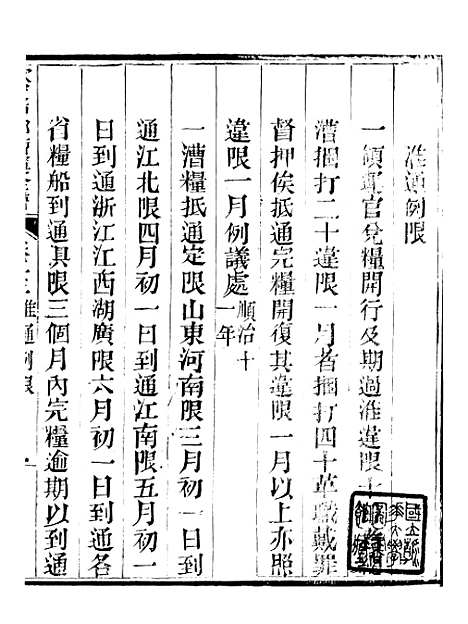 淮通例限
一領運官兌糧開行及期過淮違限十
漕捆打二十違限一月者捆打四十革職戴罪
督押俟抵通完糧開復其違限一月以上亦照
違限一月例議處順治十一年
一漕糧抵通定限山東河南限三月初一日到
通江北限四月初一日到通江南限五月初一
日到通浙江江西湖廣限六月初一日到通各
省糧船到通具限三個月內完糧逾期以到通
淮通例限